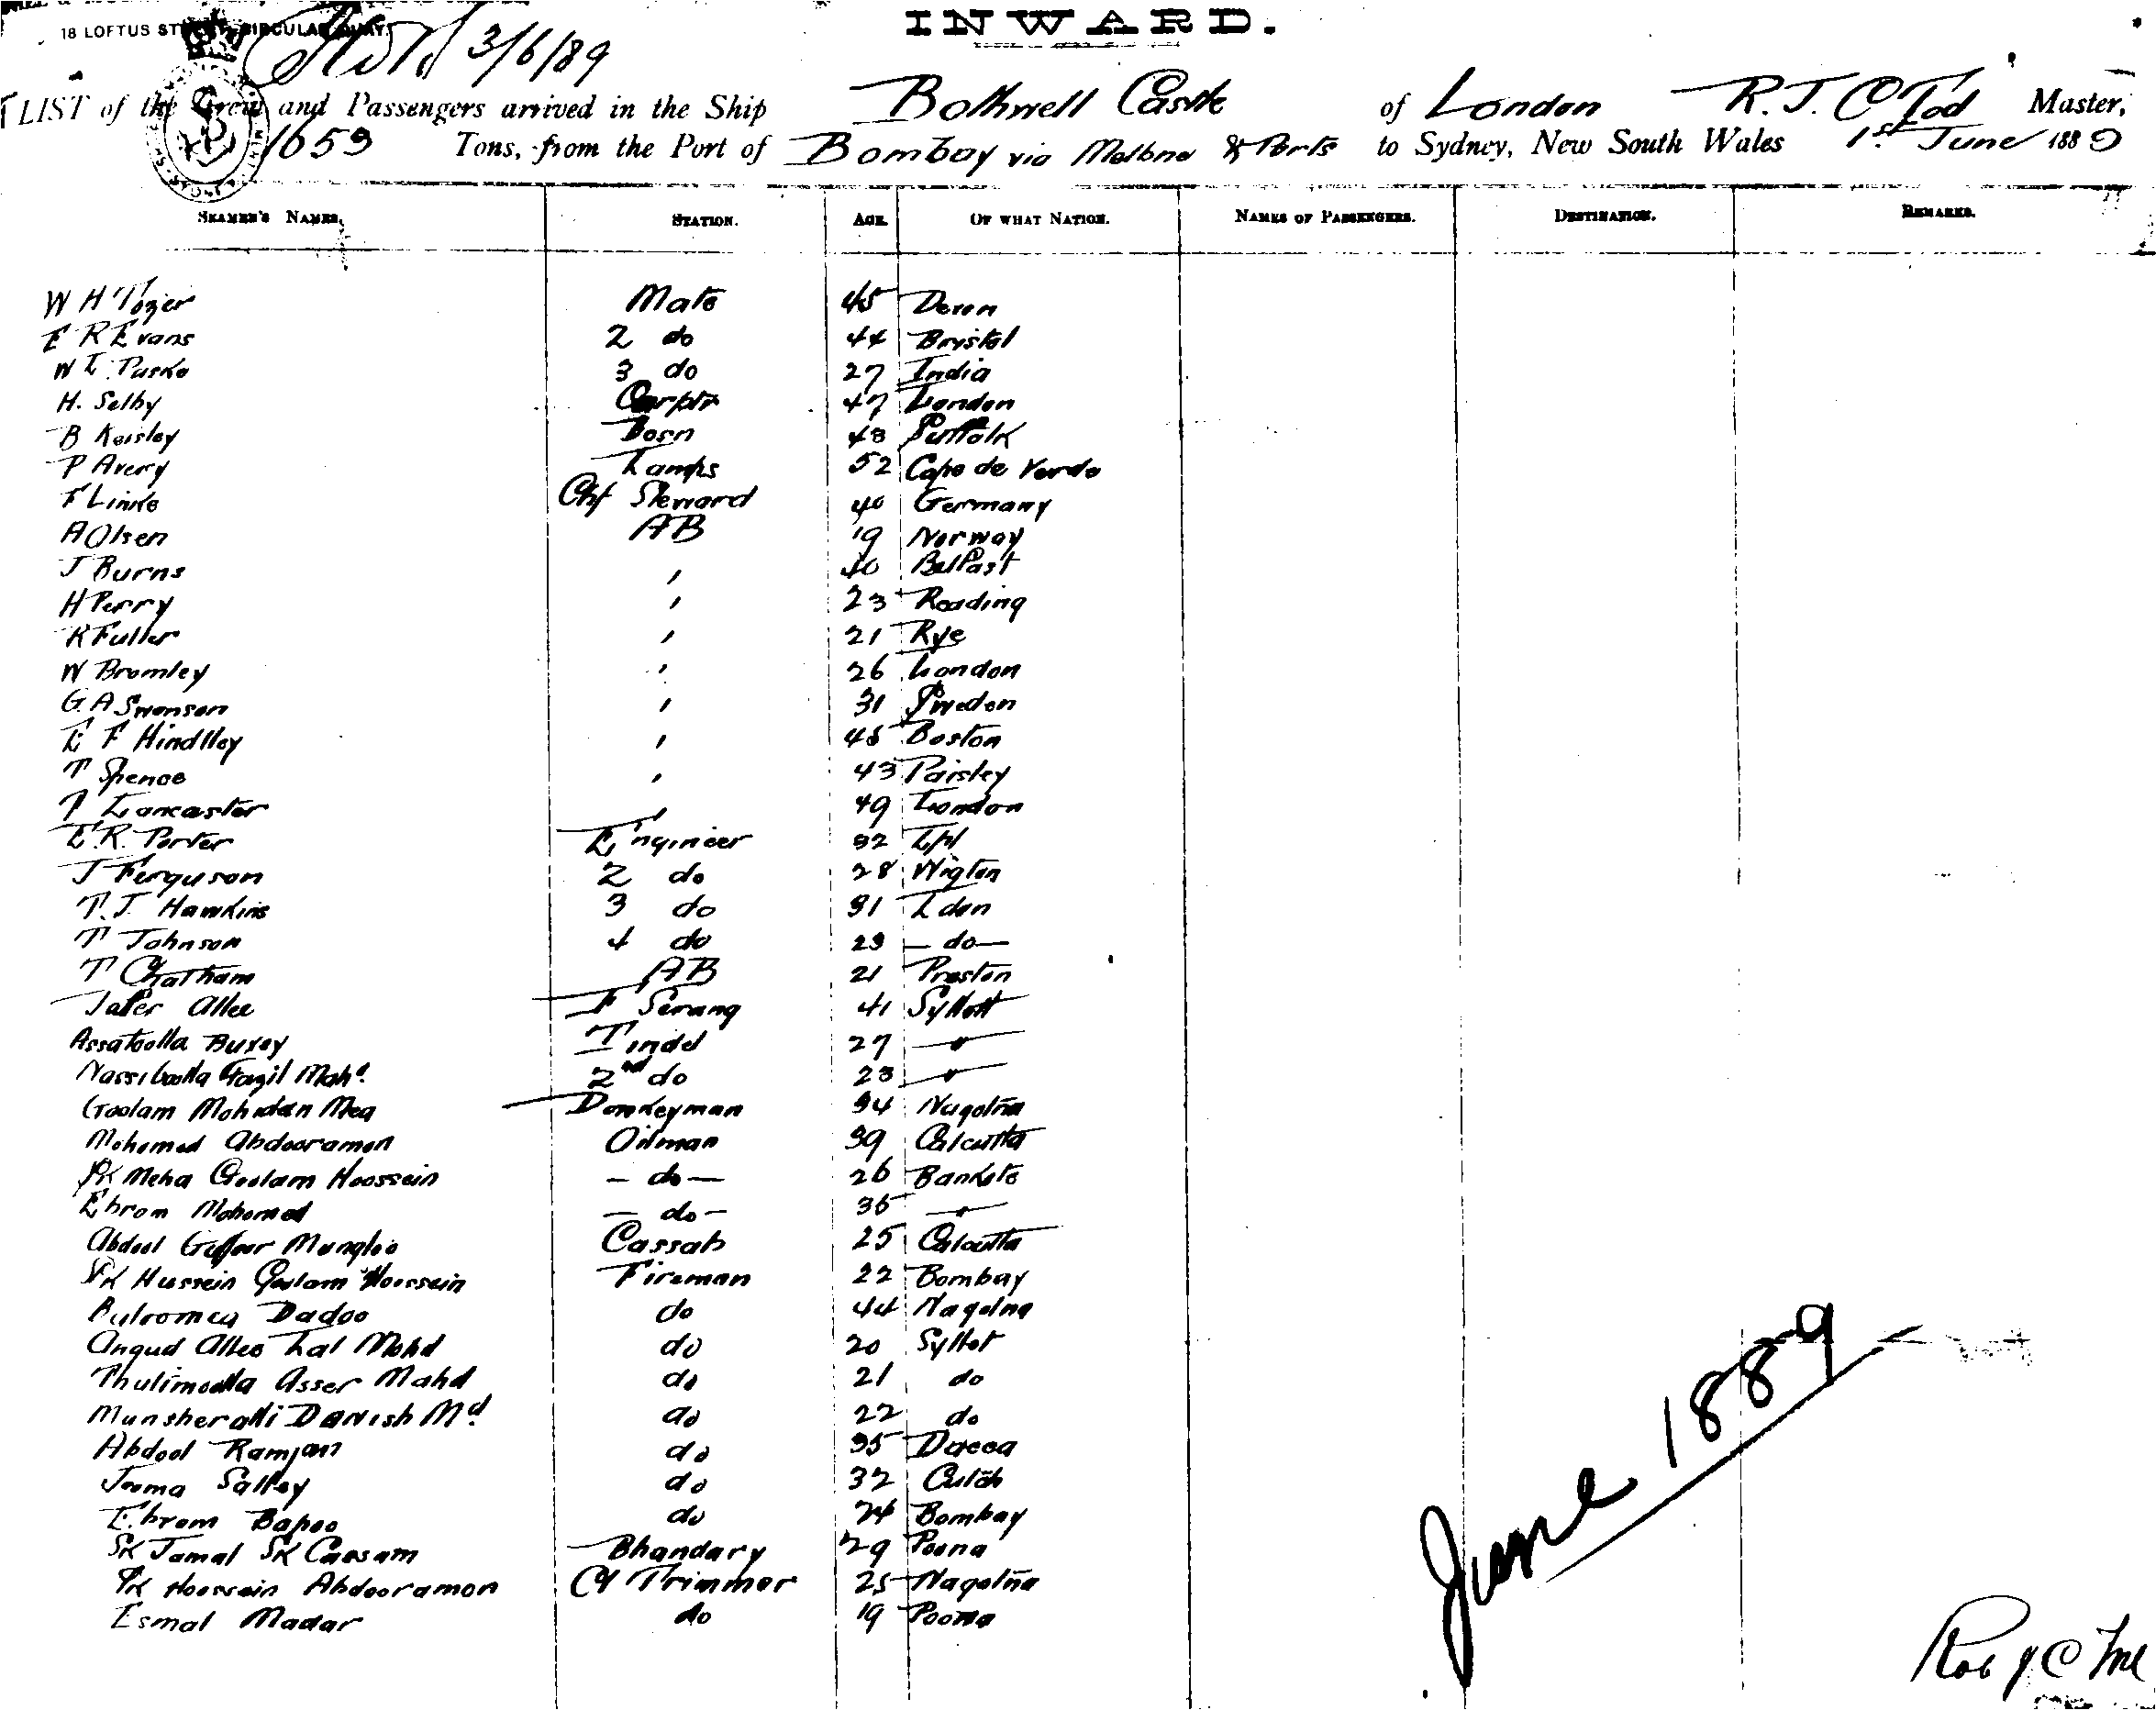 INWARD.
18 LOFTUS STREET, CIRCULAR QUAY.
3/6/89
LIST of the Crew and Passengers arrived in the Ship Bothwell Castle of London R. J. C Tod Master,
1653 Tons, from the Port of Bombay via Melbne & Ports to Sydney, New South Wales 1st June 1889
SEAMEN'S NAMES. STATION. AGE. OF WHAT NATION. NAMES OF PASSENGERS. DESTINATION. REMARKS.
W H Tozer Mate 45 Devon
E R Evans 2 do 44 Brystol
W E Parke 3 do 27 India
H. Selby Carptr 47 London
B Keisley Bosn 48 Suffolk
P Avery Lamps 52 Cape de Verde
F Linke Chf Steward 40 Germany
A Olsen AB 19 Norway
J Burns " 40 Belfast
H Perry " 23 Reading
K Fuller " 21 Rye
W Bromley " 26 London
G. A Swenson " 31 Sweden
E F Hindlley " 45 Boston
T Spence " 43 Paisley
T Lancaster " 49 London
E. R. Porter Engineer 32 L/pl
J Ferguson 2 do 28 Wigton
T. J. Hawkins 3 do 31 Ldon
T Johnson 4 do 23 - do -
T Chatham AB 21 Preston
Jafer Allee F Serang 41 Syllett
Assatoolla Buxey Tindel 27 "
Nassiboolla Fazil Mahd 2nd do 23 "
Goolam Mohidan Mea Donkeyman 34 Nagotna
Mohomed Abdooramon Oilman 39 Calcutta
SK Meha Goolam Hoossein - do - 26 Bankote
Ebram Mohomed - do - 35 "
Abdool Guffoor Mungloo Cassab 25 Calcutta
SK Hussein Goolam Hoossein Fireman 22 Bombay
Dadoo do 44 Nagotna
Allee Lal Mohd do 20 Syllet
Asser Mahd do 21 do
Munsheralli Darvish Md do 22 do
Abdool Ramjan do 35 Dacca
Jooma Salley do 32 Cutch
Ebram Bapoo do 24 Bombay
SK Jamal SK Cassam Bhandary 29 Poona
SK Hoossein Abdooramon Cl Trimmer 25 Nagotna
Esmal Madar do 19 Poona
June 1889